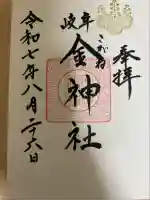 奉拝
岐阜
金神社
こがね
令和七年八月二十六日